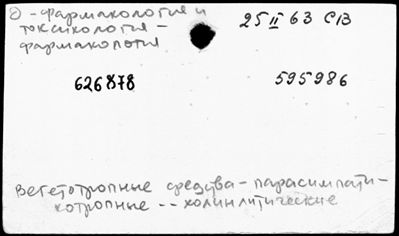 О - фармакология и
токсикология -
фармакопея
25 II 63 СВ
626878
595986
Вегетотропные средства - парасимпати-
котропные -- холинлитические